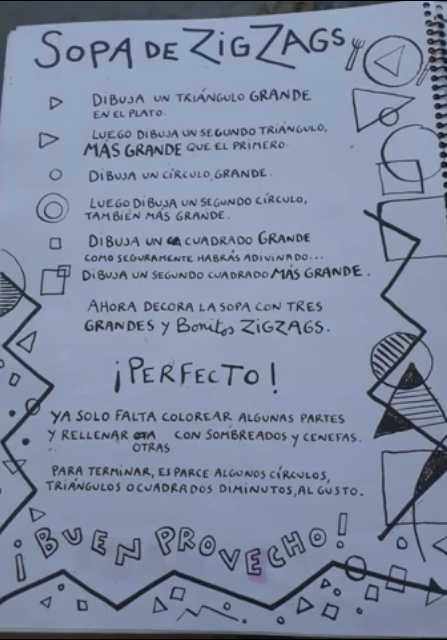 SOPA DE ZIGZAGS
DIBUJA UN TRIÁNGULO GRANDE
EN EL PLATO.
LUEGO DIBUJA UN SEGUNDO TRIÁNGULO,
MÁS GRANDE QUE EL PRIMERO.
DIBUJA UN CÍRCULO GRANDE.
LUEGO DIBUJA UN SEGUNDO CÍRCULO,
TAMBIÉN MÁS GRANDE.
DIBUJA UN CUADRADO GRANDE
COMO SEGURAMENTE HABRÁS ADIVINADO...
DIBUJA UN SEGUNDO CUADRADO MÁS GRANDE.
AHORA DECORA LA SOPA CON TRES
GRANDES Y Bonitos ZIGZAGS.
¡PERFECTO!
YA SOLO FALTA COLOREAR ALGUNAS PARTES
Y RELLENAR CON SOMBREADOS Y CENEFAS.
OTRAS
PARA TERMINAR, ESPARCE ALGUNOS CÍRCULOS,
TRIÁNGULOS O CUADRADOS DIMINUTOS, AL GUSTO.
¡BUEN PROVECHO!